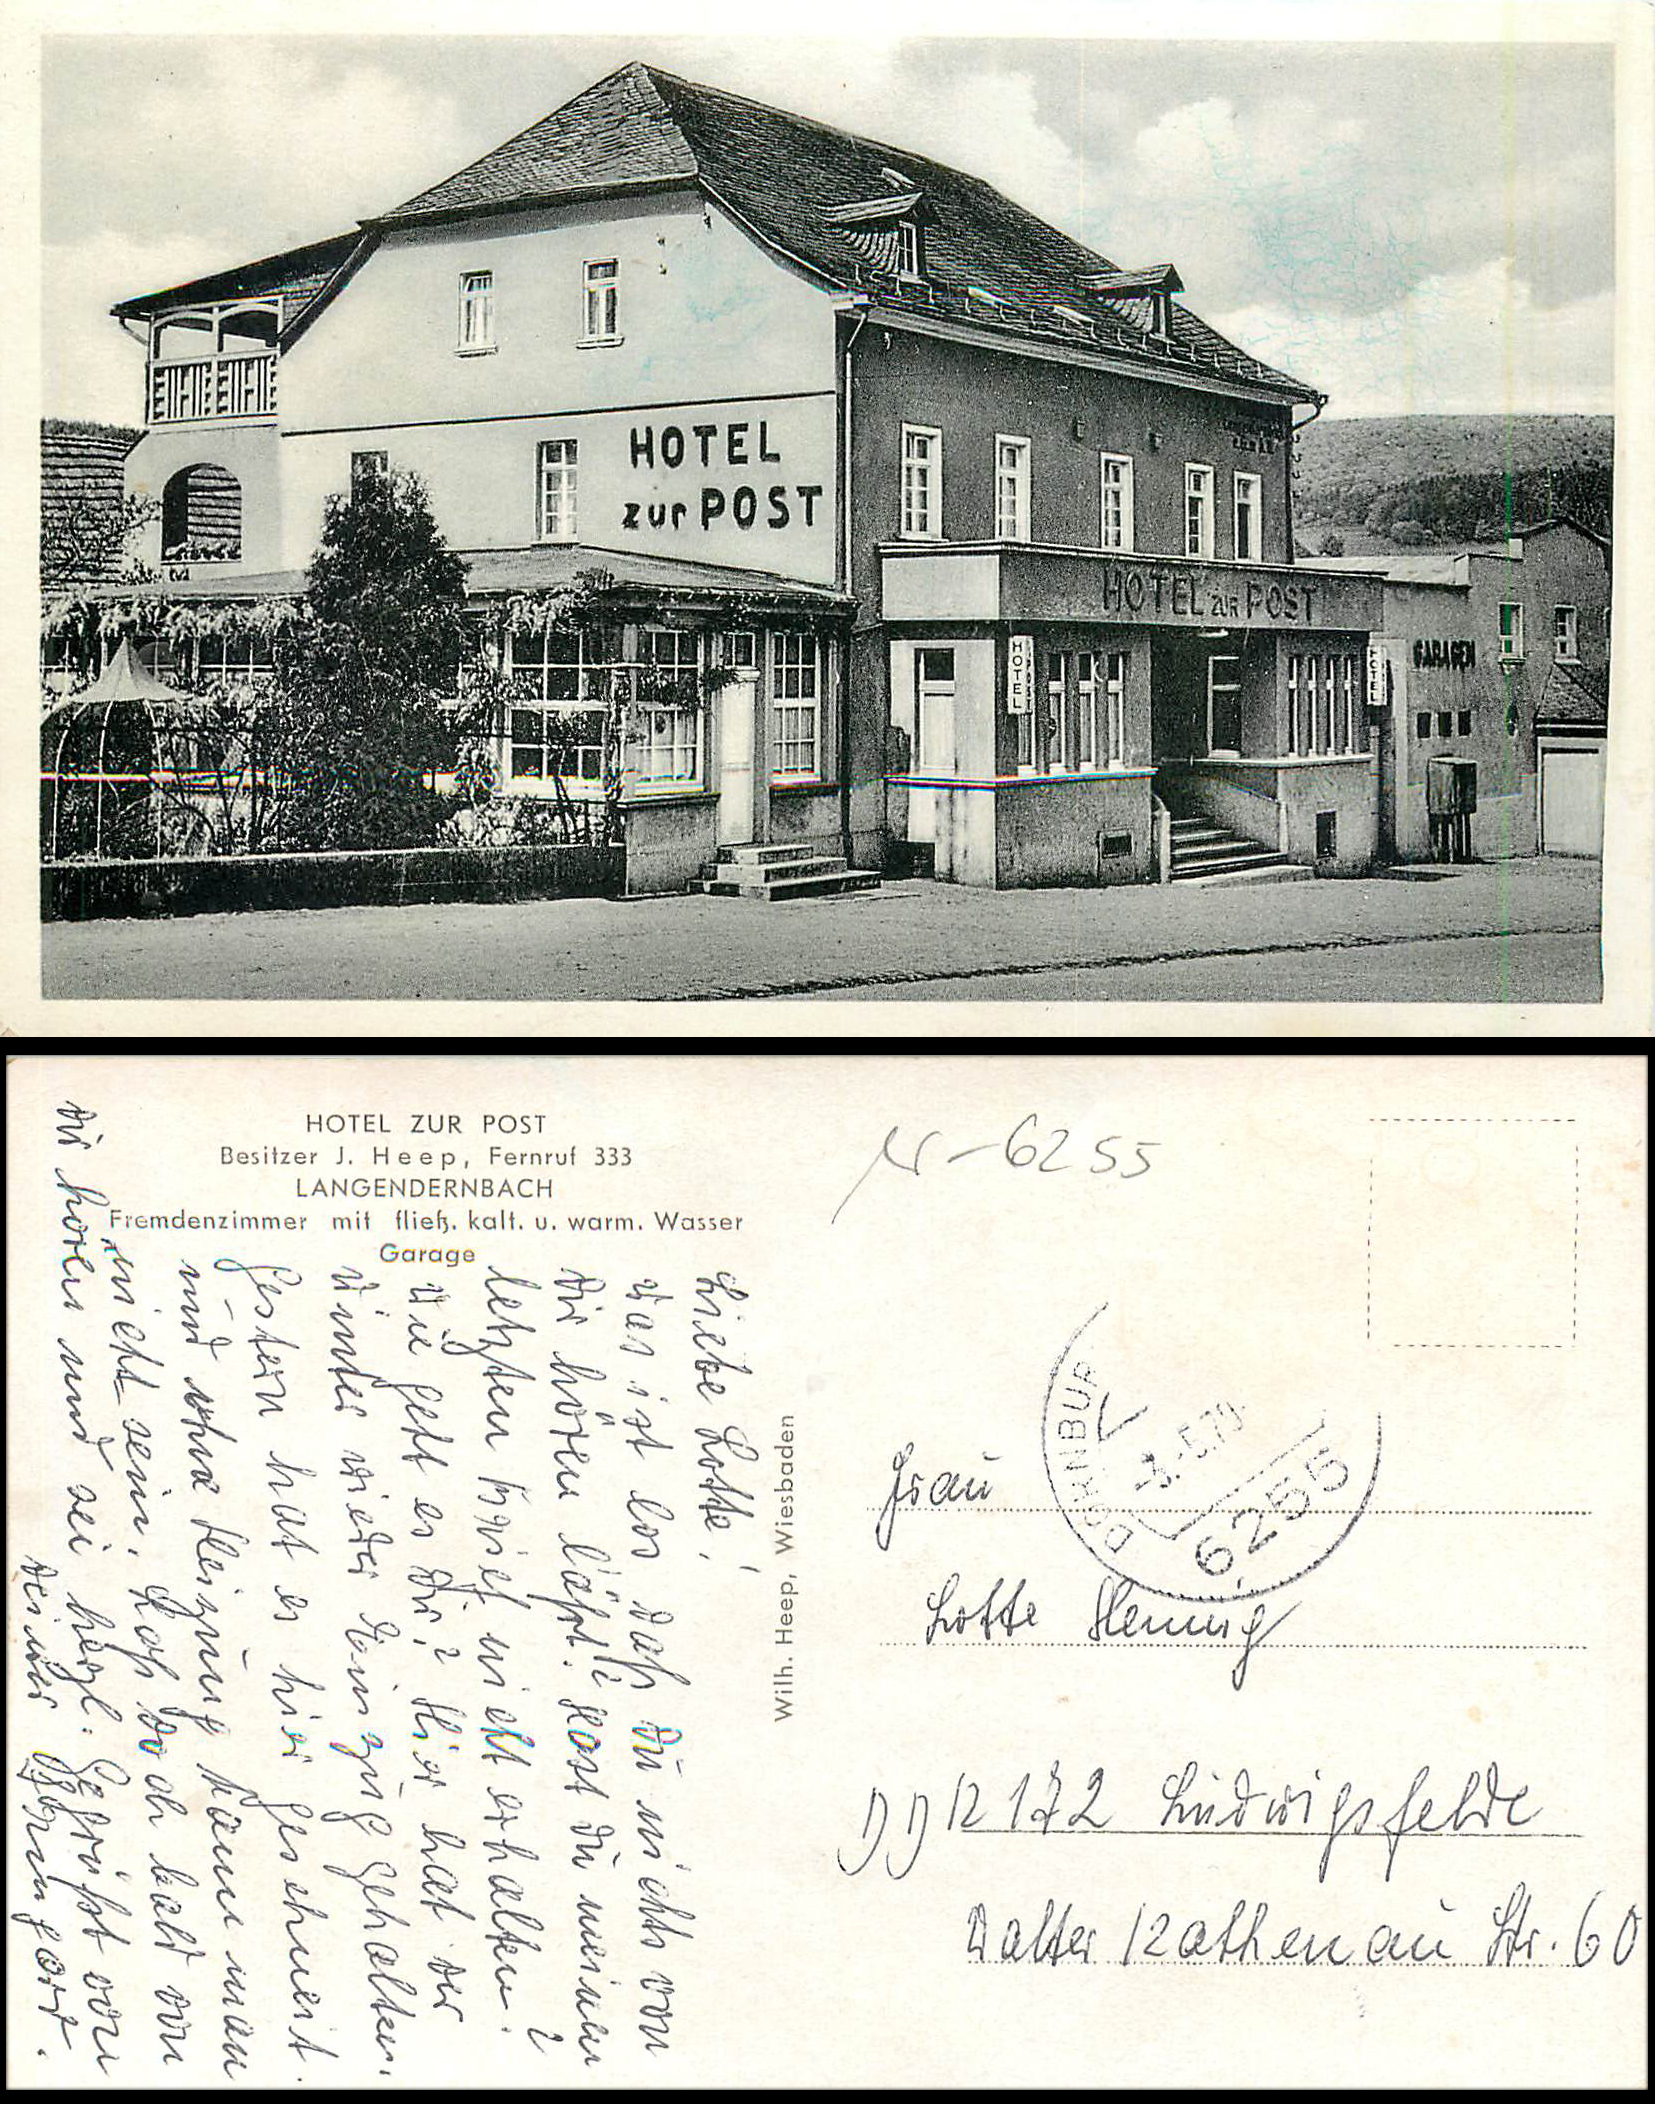 HOTEL
zur POST
HOTEL ZUR POST
HOTEL
POST
HOTEL
GARAGEN
HOTEL ZUR POST
Besitzer J. Heep, Fernruf 333
LANGENDERNBACH
Fremdenzimmer mit fließ. kalt. u. warm. Wasser
Garage
Liebe Lotte!
Was ist los daß Du nichts von
Dir hören läßt? Hast Du meinen
letzten Brief nicht erhalten?
Wie geht es Dir? Hier hat der
Winter wieder Einzug gehalten.
Gestern hat es hier geschneit.
und ohne Heizung kann man
nicht sein. Laß doch bald von
Dir hören und sei herzl. Gegrüßt von
Deiner
Wilh. Heep, Wiesbaden
N-6255
DORNBURG
-5.70
6255
Frau
Lotte Hennig
DDR 172 Ludwigsfelde
Walter Rathenau Str. 60